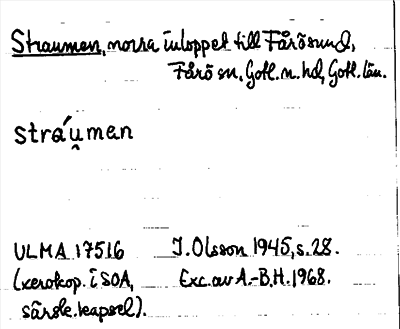 Straumen, norra inloppet till Fårösund,
Fårö sn, Gotl. n. hd, Gotl. län.
stráu̯men
ULMA 17516 I. Olsson 1945, s. 28.
(xerokop. i SOA, Exc. av A.-B.H. 1968.
särsk. kapsel).